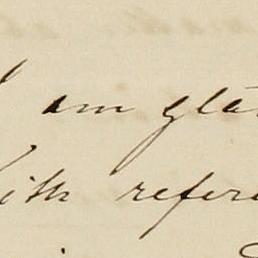 I am glad
With refere